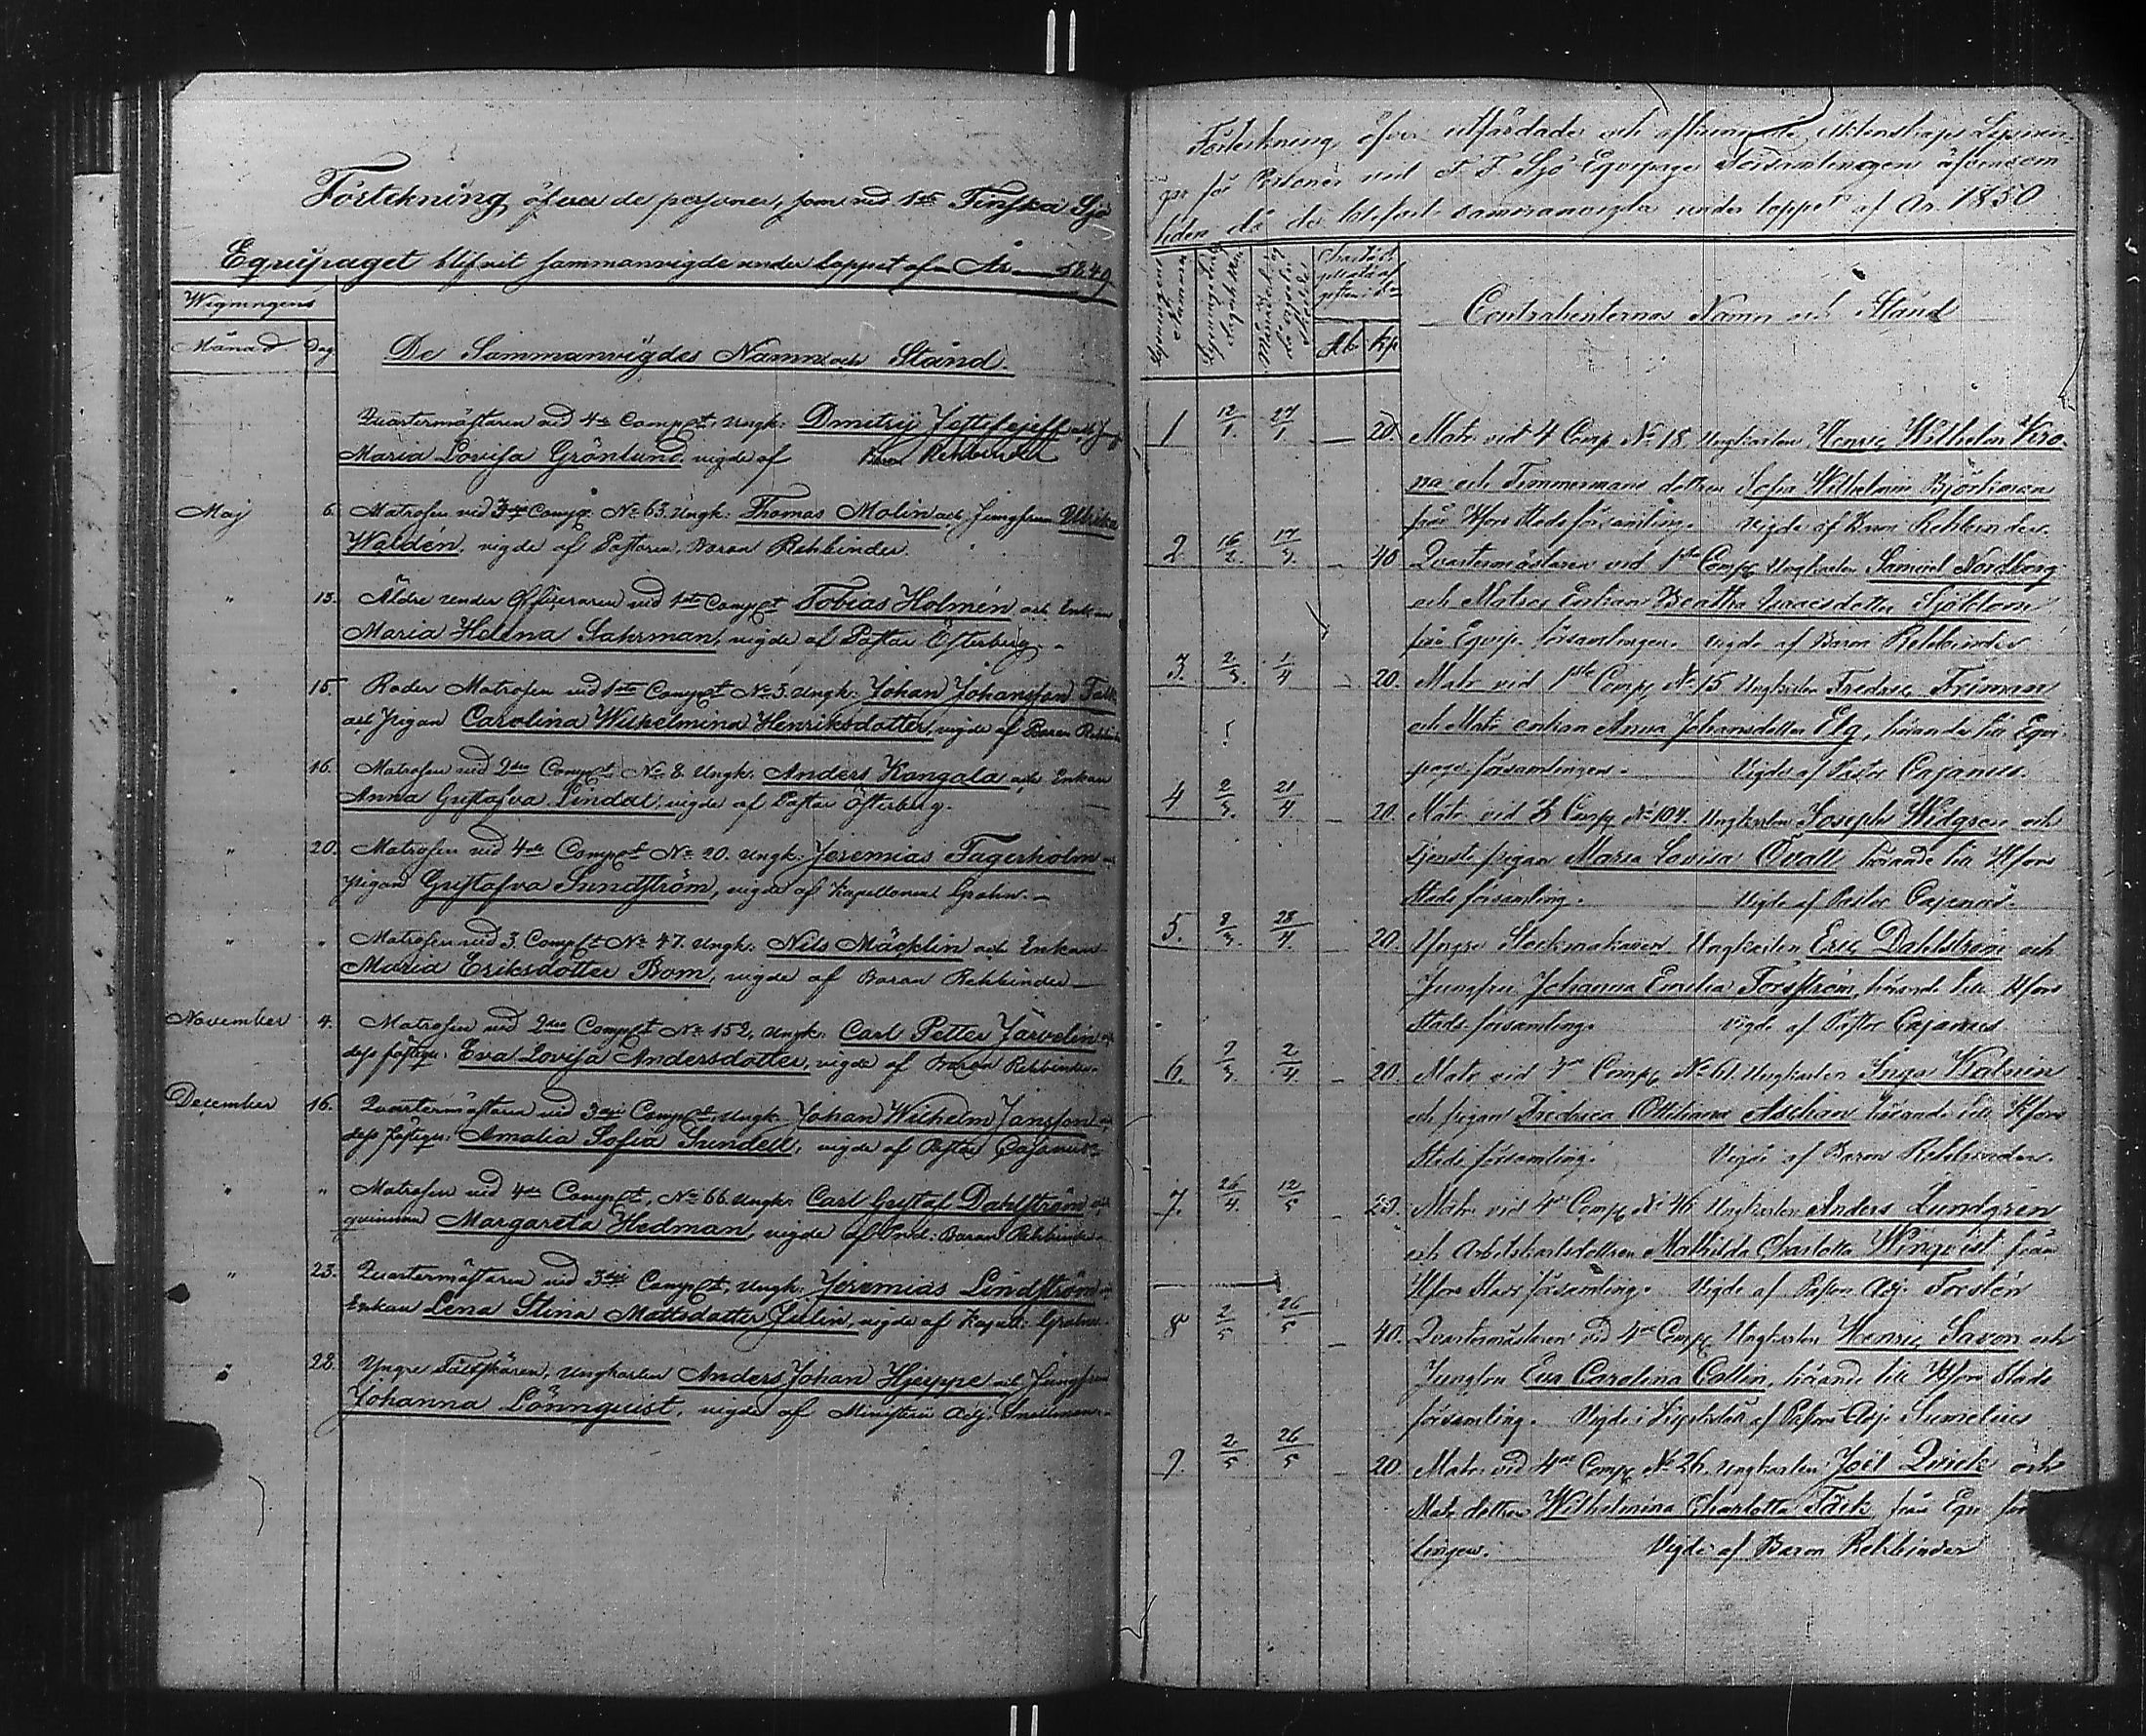 Förtekning öfver de personer, som vid 1sta Finska Sjö
Equipaget blifvit sammanvigde under loppet af År 1849
Wigningens
Månad Dag
De Sammanvigdes Namn och Stånd.
Quartermästaren vid 4de Compet. Ungk: Dmitrij och
Maria Lovisa Grönlund vigde af Baron Rehbinder
Maj 6. Matrosen vid 3dje Comp: No 63. Ungk: Thomas Molin och Jungfrun Ulrika
Waldén, vigde af Pastorn, Baron Rehbinder.
" 13. Äldre under Officeraren vid 1sta Compet Tobias Holmén och Enkan
Maria Helena Sahrman, vigde af Pastor Österberg.
" 15. Roder Matrosen vid 1sta Compet No 3. Ungk: Johan Johansson Falk
och Pigan Carolina Wilhelmina Henriksdotter, vigde af Baron Rehbinder
" 16. Matrosen vid 2dra Compet No 8. Ungk: Anders Kangala och Enkan
Anna Gustafva Lindal, vigde af Pastor Österberg.
" 20. Matrosen vid 4de Compet No 20. Ungk: Jeremias Fagerholm och
Pigan Gustafva Sundström, vigde af Kapellanen Grahn.
" " Matrosen vid 3. Compet No 47. Ungk: Nils Mäcklin och Enkan
Maria Eriksdotter Bom, vigde af Baron Rehbinder
November 4. Matrosen vid 2dra Compet No 152, Ungk: Carl Petter Järvelin och
dess fästequ: Eva Lovisa Andersdotter, vigde af Baron Rehbinder.
December 16. Quartermästaren vid 3dje Compet, Ungk: Johan Wilhelm Jansson och
dess fästequ: Amalia Sofia Sundell, vigde af Pastor Cajanus
" " Matrosen vid 4de Compet, No 66. Ungk: Carl Gustaf Dahlström och
quinnan Margareta Hedman, vigde af Baron Rehbinder.
" 23. Quartermästaren vid 3dje Compet, Ungk: Jeremias Lindström och
Enkan Lena Stina Mattsdotter Julin, vigde af Kapell: Grahn.
" 28. Yngre Fältskären, Ungkarlen Anders Johan Hjeippe och Jungfrun
Johanna Lönnquist, vigde af Ministerii Adj: Snellman.
Förteckning öfver utfärdade och Äktenskaps Lysnin-
gar för Personer vid 1. F. Sjö Equipage Församlingen äfvensom
tiden då de blifvit sammanvigda under loppet af År 1850
Rb. Kp.
Contrahenternas Namn och Stånd
1 12/1. 27/1 — 20. Matr. vid 4 Comp No 18 Ungkarlen Henric Wilhelm Kro
na och Timmermans dottren Sofia Wilhelmin Björkman
från Hfors Stads församling. Vigde af Baron Rehbinder.
2. 16/2. 17/3. — 40 Quartermästaren vid 1sta Comp Ungkarlen Samuel Nordberg
och Matros Enkan Beatha Isaacsdotter Sjöblom
från Equip. församlingen. Vigde af Baron Rehbinder
3. 2/3. 1/4 20. Matr vid 1sta Comp No 15 Ungkarlen Fredric Friman
och Matr enkan Anna Johansdotter Elg, hörande till Equi-
page församlingen. Vigde af Pastor Cajanus.
4 2/3. 21/4. — 20. Matr vid 3 Comp No 104 Ungkarlen Joseph Widgren och
tjenste pigan Maria Lovisa Qvall hörande till Hfors
Stads församling. Vigde af Pastor Cajanus.
5. 8/3. 28/4. — 20. Yngre Stockmakaren Ungkarlen Eric Dahlström och
Jungfru Johanna Emilia Forsström, hörande till Hfors
Stads församling. Vigde af Pastor Cajanus
6. 9/3. 2/4. — 20. Matr vid Comp No 61. Ungkarlen
och pigan Fredrica Ottiliana hörande till Hfors
Stads församling. Vigde af Baron Rehbinder.
7. 26/4. 12/5 — 20. Matr. vid 4de Comp No 46 Ungkarlen Anders Lundgren
och Arbetskarlsdottren Mathilda Charlotta Winqvist från
Hfors Stads församling. Vigde af Pastors Adj. Forstén
8 2/5 26/5 — 40. Quartermästaren vid 4de Comp Ungkarlen Henric Savon och
Jungfru Eva Carolina Collin, hörande till Hfors Stads
församling. Vigde i af Pastors Adj. Sumelius
9. 2/5. 26/5 — 20. Matr. vid 4de Comp No 26. Ungkarlen Joël Qvick och
Matr. dottren Wilhelmina Charlotta Falk från Equ för
lingen. Vigde af Baron Rehbinder